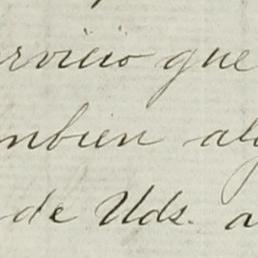 ervicio que
mbien alg
de Uds. a